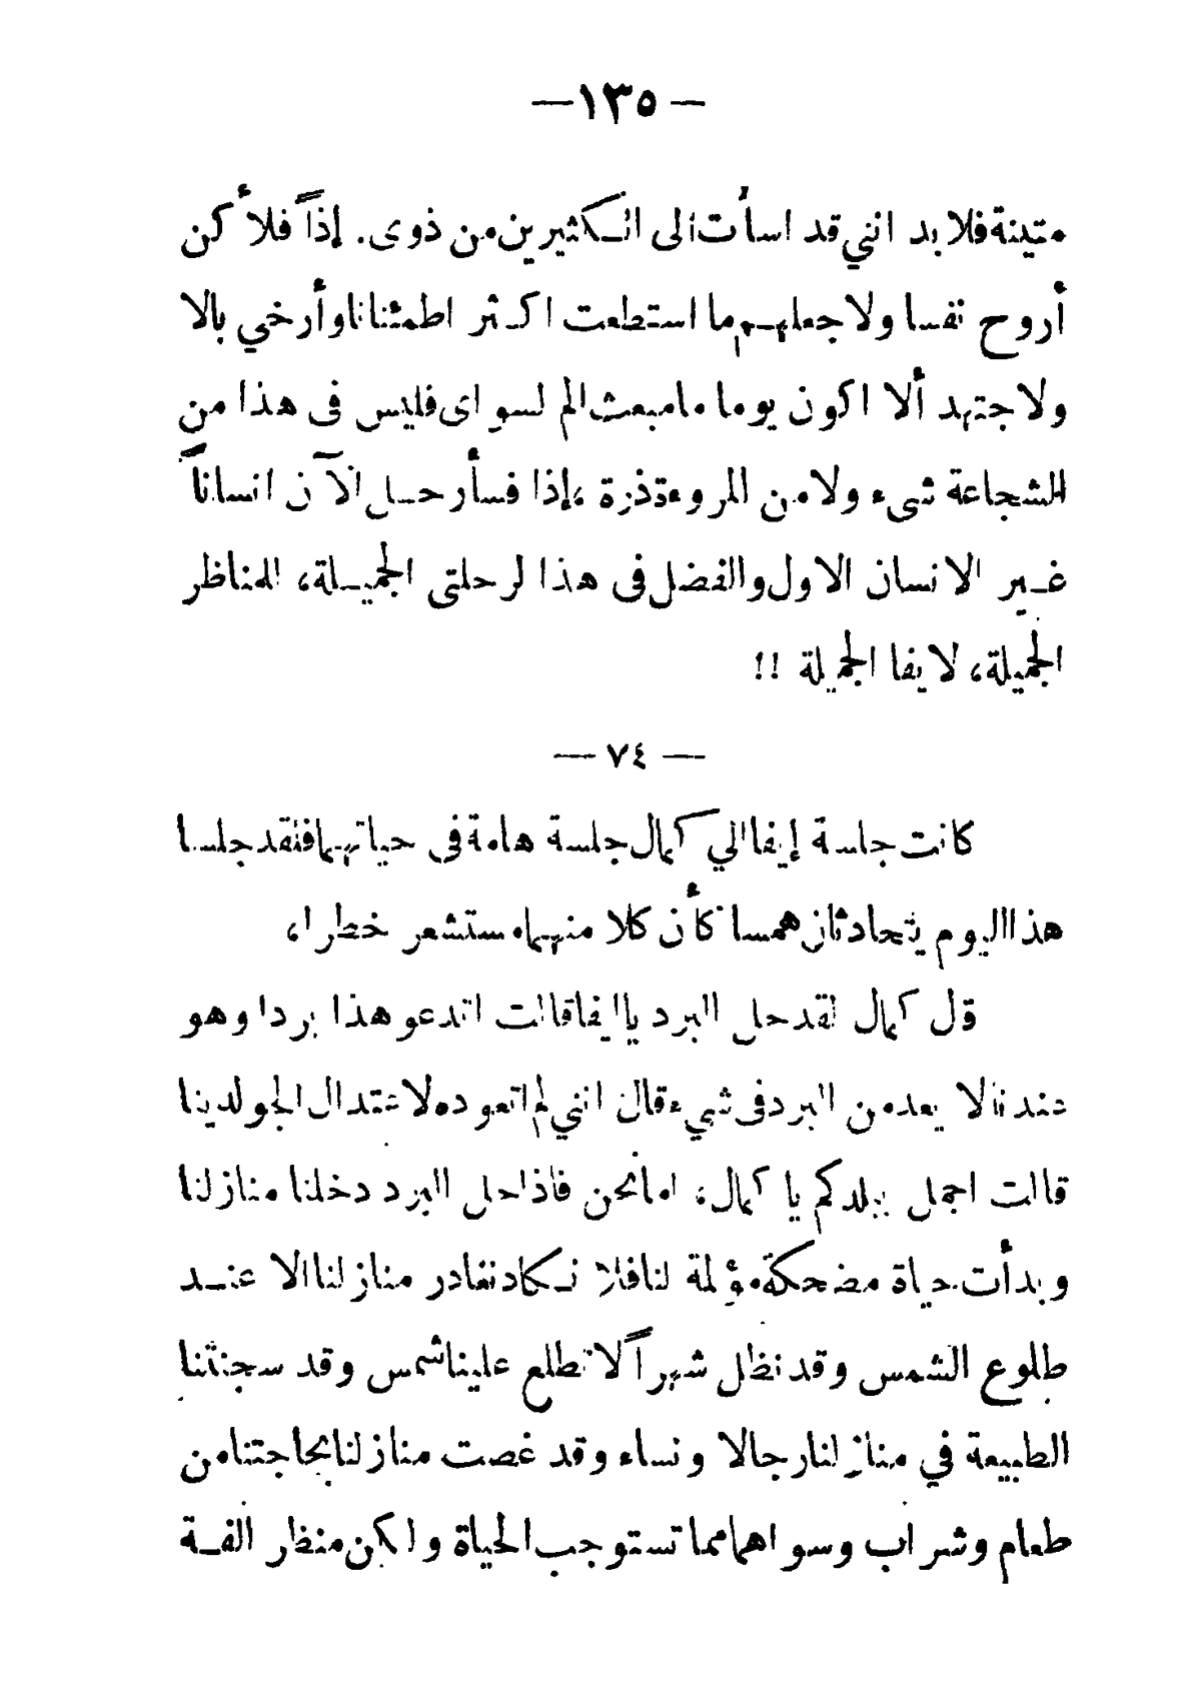 — ١٣٥ —
متينة فلا بد انني قد اسأت الى الكثيرين من ذوى. إذاً فلأكن
أروح نفسا ولاجعلهم ما استطعت اكثر اطمئنانا وأرخي بالا
ولاجتهد ألا اكون يوما ما مبعث الم لسواى فليس فى هذا من
الشجاعة شىء ولا من المروءة ذرة ، إذا فسأرحل الآن انساناً
غير الانسان الاول والفضل فى هذا لرحلتى الجميلة، للمناظر
الجميلة، لايفا الجميلة !!
— ٧٤ —
كانت جلسة إيفا الي كمال جلسة هامة فى حياتهما فلقد جلسا
هذا اليوم يتحادثان همسا كأن كلا منهما مستشعر خطرا،
قل كمال لقد حل البرد يا ايفا قالت اتدعو هذا بردا وهو
عندنا لا يعد من البرد فى شيء قال انني لم اتعوده لاعتدال الجو لدينا
قالت اجمل ببلدكم يا كمال، اما نحن فاذا حل البرد دخلنا منازلنا
وبدأت حياة مضحكة مؤلمة لنا فلا نكاد نغادر منازلنا الا عند
طلوع الشمس وقد نظل شهراً لا تطلع علينا شمس وقد سجنتنا
الطبيعة في منازلنا رجالا ونساء وقد غصت منازلنا بحاجتنا من
طعام وشراب وسواهما مما تستوجب الحياة ولكن منظار الفة